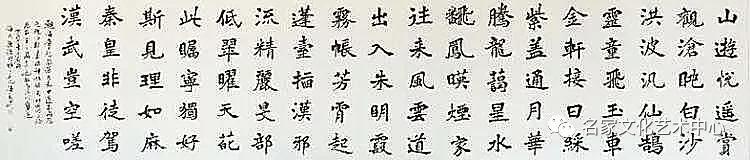 山遊悦遥賞
觀滄眺白沙
洪波汎仙鵠
靈童飛玉車
金軒接日綵
紫蓋通月華
騰龍藹星水
翻鳳暎煙家
往来風雲道
出入朱明霞
霧帳芳霄起
蓬臺插漢邪
流精麗旻部
低翠曜天葩
此矚寧獨好
斯見理如麻
秦皇非徒駕
漢武豈空嗟
名家文化艺术中心